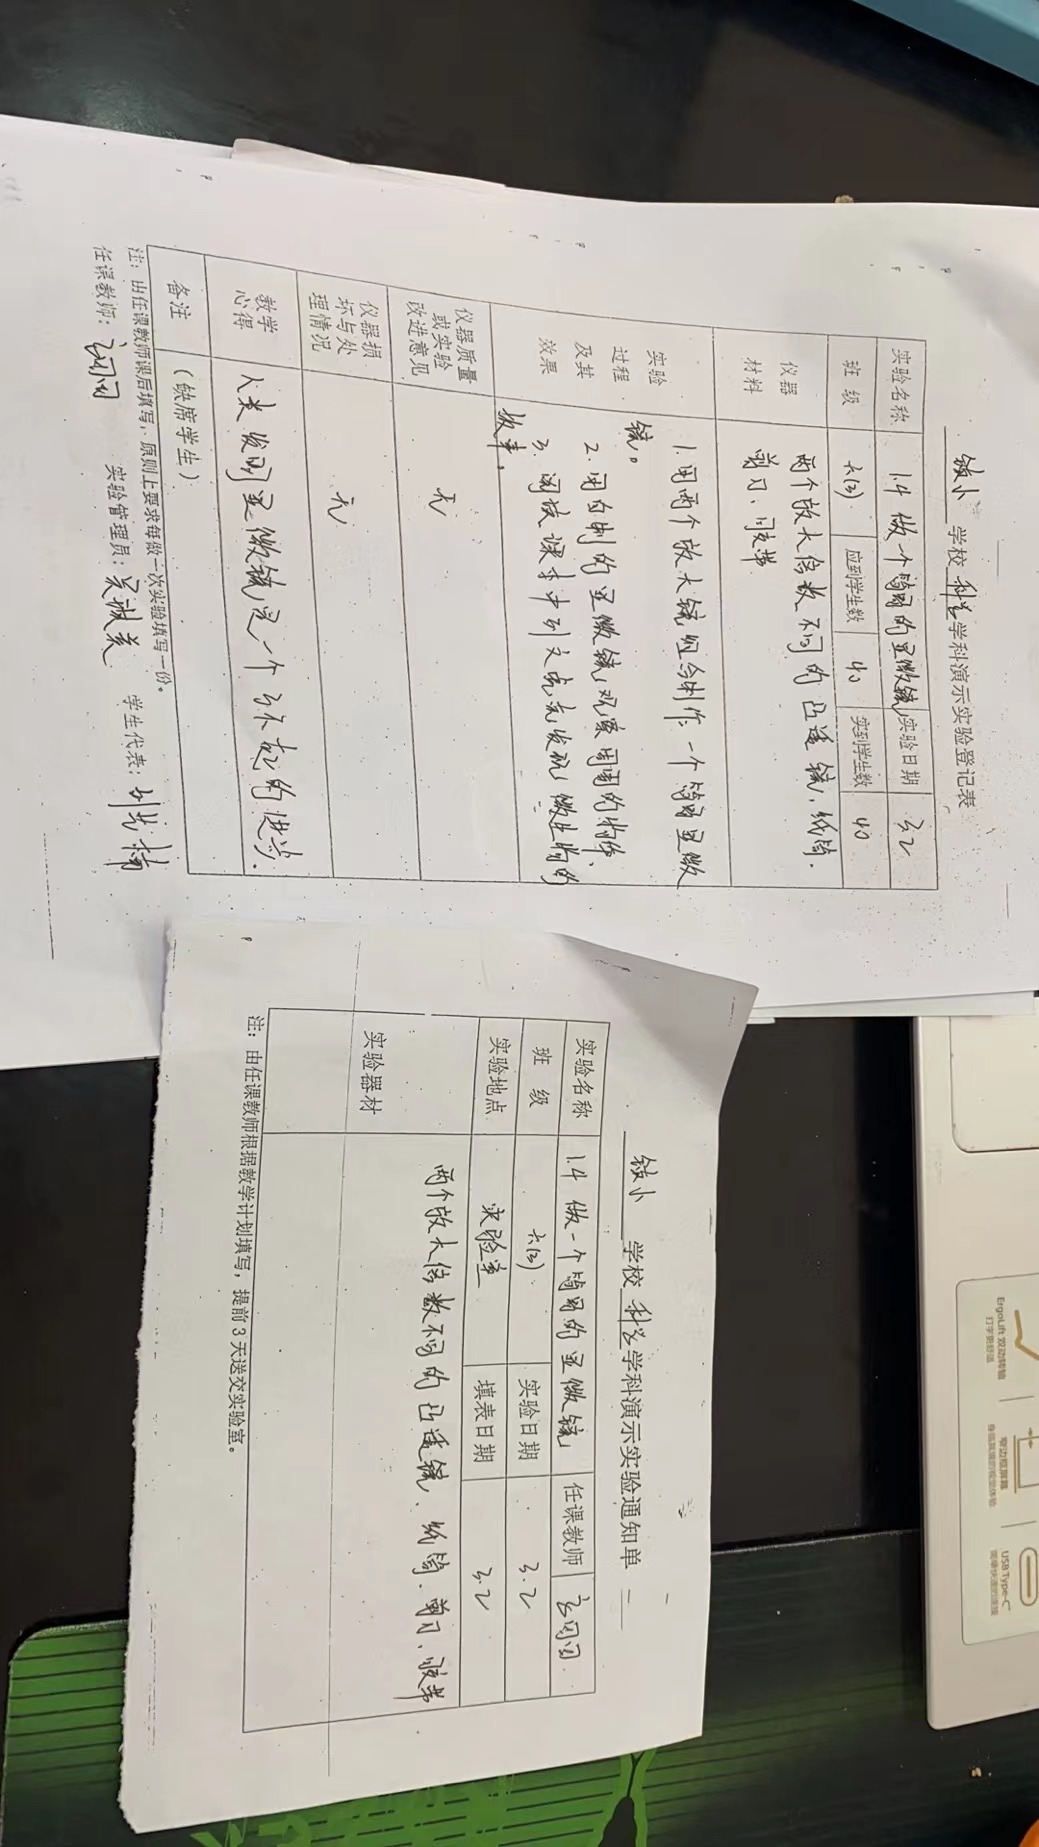 学校 科学 学科演示实验登记表
实验名称 1.4 做一个简易的显微镜 实验日期 3.2
班 级 六(3) 应到学生数 40 实到学生数 40
仪器材料 两个放大倍数不同的凸透镜、纸筒、
剪刀、胶带
实验过程及其效果
1. 用两个放大镜组合制作一个简易显微
镜。
2. 用自制的显微镜观察周围的物体、
3. 阅读课本中列文虎克发现微生物的
故事。
仪器质量或实验改进意见 无
仪器损坏与处理情况 无
教学心得 人类发明显微镜是一个了不起的进步.
备注 (缺席学生)
注: 由任课教师课后填写, 原则上要求每做一次实验填写一份。
任课教师: 实验管理员: 学生代表:
学校 科学 学科演示实验通知单
实验名称 1.4 做一个简易的显微镜 任课教师
班 级 六(3). 实验日期 3.2
实验地点 实验室 填表日期 3.2
实验器材 两个放大倍数不同的凸透镜、纸筒、剪刀、胶带
注: 由任课教师根据教学计划填写, 提前3天送交实验室。
ErgoLift 双动转轴
打字更舒适
窄边框屏幕
USB Type-C™